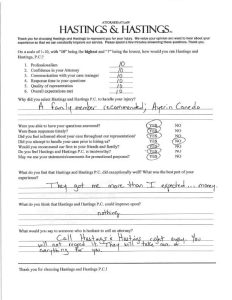 ATTORNEYS AT LAW
HASTINGS & HASTINGS
Thank you for choosing Hastings and Hastings to represent you for your injury. We value your opinion and want to hear about your
experience so that we can constantly improve our service. Please spend a few minutes answering these questions. Thank you.
On a scale of 1-10, with "10" being the highest and "1" being the lowest, how would you rate Hastings and
Hastings, P.C.?
1. Professionalism 10
2. Confidence in your Attorney 10
3. Communication with your case manager 10
4. Response time to your questions 10
5. Quality of representation 10
6. Overall expectations met 10
Why did you select Hastings and Hastings P.C. to handle your injury?
A family member recommended;
Were you able to have your questions answered? YES NO
Were there responses timely? YES NO
Did you feel informed about your case throughout our representation? YES NO
Did we attempt to handle your case prior to hiring us? YES NO
Would you recommend our firm to your friends and family? YES NO
Do you feel Hastings and Hastings P.C. is trustworthy? YES NO
May we use your statements/comments for promotional purposes? YES NO
What do you feel that Hastings and Hastings P.C. did exceptionally well? What was the best part of your
experience?
They got me more than I expected... money.
What do you think that Hastings and Hastings P.C. could improve upon?
nothing
What would you say to someone who is hesitant to call an attorney?
Call Hastings & Hastings right away. You
will not regret it. They will take care of
everything for you.
Thank you for choosing Hastings and Hastings P.C.!